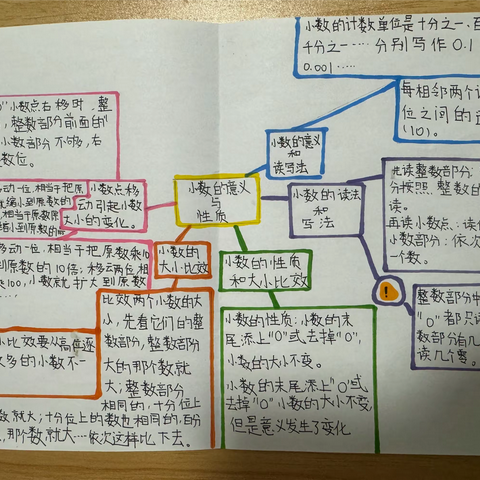 小数的计数单位是十分之一、百
千分之一……分别写作0.1
0.001……
每相邻两个计
位之间的
(10)。
小数的意义
和
读写法
小数的意义
与
性质
小数的读法
和
写法
先读整数部分:
分按照整数的
读。
再读小数点:读
小数部分:依次
一个数。
!
整数部分中
"0"都只读
数部分有几
读几个零。
小数的性质
和大小比效
小数的性质:小数的末
尾添上"0"或去掉"0",
小数的大小不变。
小数的末尾添上"0"或
去掉"0"小数的大小不变,
但是意义发生了变化
小数的
大小比效
比效两个小数的大
小,先看它们的整
数部分,整数部分
大的那个数就
大;整数部分
相同的,十分位上
数就大;十分位上的数也相同的,百分
,那个数就大…依次这样比下去。
小比效要从高位逐
数多的小数不一
小数点移
动引起小数
大小的变化。
0"小数点右移时,整
,整数部分前面的"
小数部分不够,右
数位。
移动一位,相当于把原
就缩小到原数的
相当于原数除
缩小到原数的
移动一位,相当于把原数乘10
到原数的10倍;移动两位相
乘100,小数就扩大到原数
……